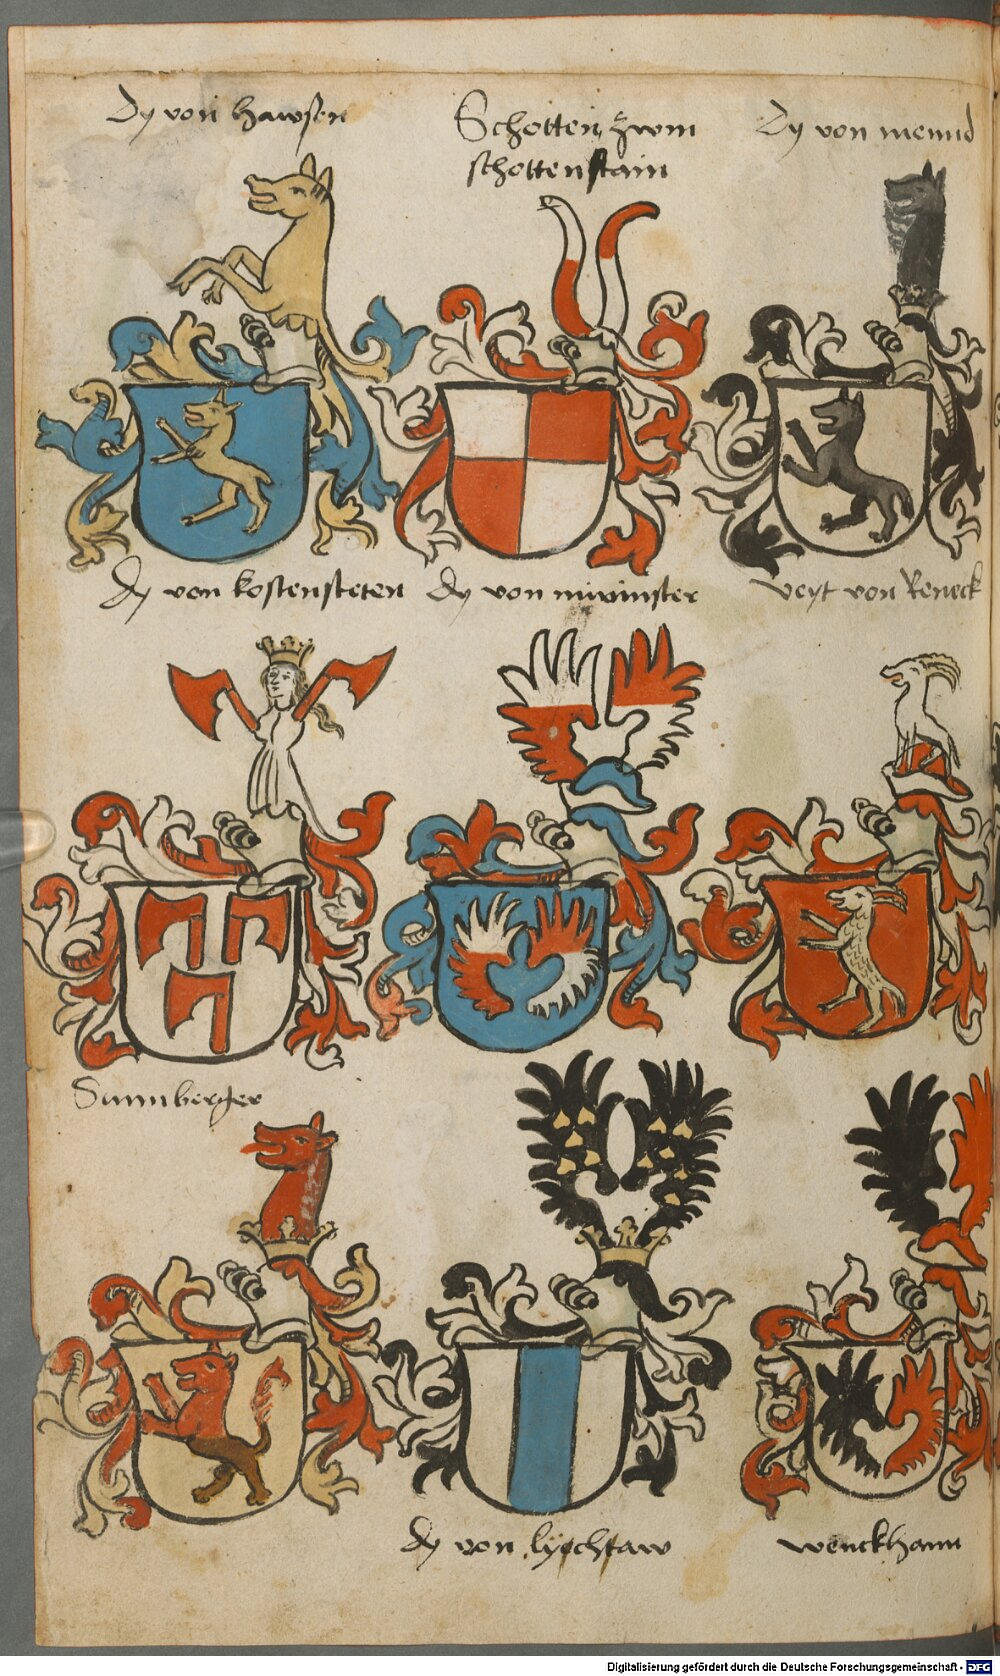 Dy von hawsen
Schotten zwm
schottenstain
Dy von
dy von kostensteten
dy von
veyt von Reneck
dy von lyechtaw
wenckhann
Digitalisierung gefördert durch die Deutsche Forschungsgemeinschaft - DFG